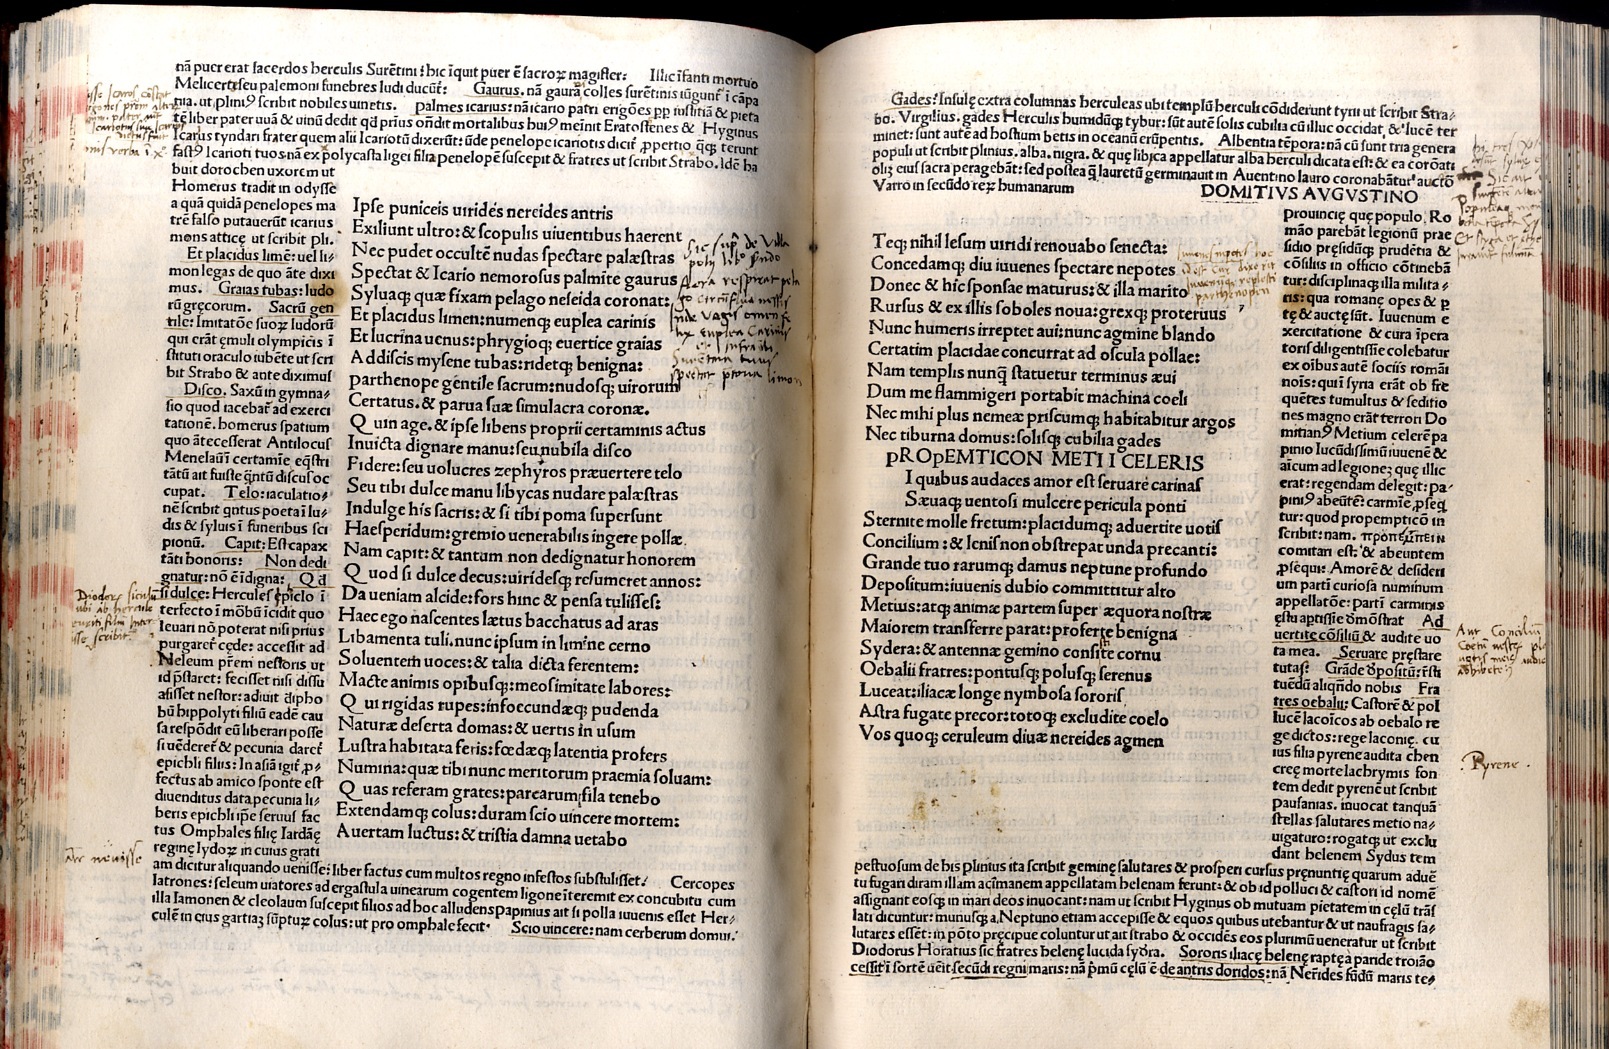 nã puer erat sacerdos herculis Surẽtini: hic ĩquit puer ẽ sacroꝝ magister: Illic ĩfanti mortuo
Melicertę seu palemoni funebres ludi ducũt̃: Gaurus. nã gaura colles surẽtinis iũgunt̃ ĩ cãpa
nia. ut pliniꝰ scribit nobiles uinetis. palmes icarius: nã icario patri erigões ꝓꝑ iustitiã & pieta
tẽ liber pater uuã & uinũ dedit qd̃ prius oñdit mortalibus huiꝰ meĩnit Eratostenes & Hyginus
Icarus tyndari frater quem alii Icariotũ dixerũt: ũde penelope icariotis dicit̃ ꝓpertio q̃q; terunt
fastꝰ Icarioti tuos nã ex polycasta ligei filia penelopẽ suscepit & fratres ut scribit Strabo. Idẽ ha
buit dorochen uxorem ut
Homerus tradit in odysse
a quã quidã penelopes ma
trẽ falso putauerũt icarius
mons atticę ut scribit pli.
Et placidus limẽ: uel li
mon legas de quo ãte dixi
mus. Graias tubas: ludo
rũ gręcorum. Sacrũ gen
tile: Imitatõe suoꝝ ludorũ
qui erãt ęmuli olympicis ĩ
stituti oraculo iubẽte ut scri
bit Strabo & ante diximus
Disco. Saxũ in gymna
sio quod iacebat̃ ad exerci
tationẽ. homerus spatium
quo ãtecesserat Antilocus
Menelaũ ĩ certamĩe eq̃stri
tãtũ ait fuisse q̃ntũ discus oc
cupat. Telo: iaculatio
nẽ scribit q̃ntus poeta ĩ lu
dis & syluis ĩ funeribus sci
pionũ. Capit: Est capax
tãti honoris: Non dedi
gnatur: nõ ẽ ĩdigna: Qd
si dulce: Hercules ꝓpicło ĩ
terfecto ĩ mõbũ ĩcidit quo
leuari nõ poterat nisi prius
purgaret̃ cęde: accessit ad
Neleum pr̃em nestoris ut
id p̃staret: fecisset nisi dissu
asisset nestor: adiuit d̃ipho
bũ hippolyti filiũ eadẽ cau
sa respõdit eũ liberari posse
si uẽderet̃ & pecunia daret̃
epichli filiis: In asiã igit̃ ꝓ
fectus ab amico sponte est
diuenditus data pecunia li
beris epichli ip̃e seruus fac
tus Omphales filię Iardãę
reginę lydoꝝ in cuius grati
am dicitur aliquando uenisse: liber factus cum multos regno infestos substulisset: Cercopes
latrones: seleum uiatores ad ergastula uinearum cogentem ligone ĩteremit ex concubitu cum
illa lamonen & cleolaum suscepit filios ad hoc alludens papinius ait si polla iuuenis esset Her
culẽ in eius gartiaʒ sũpturꝝ colus: ut pro omphale fecit. Scio uincere: nam cerberum domui.
Ipse puniceis uirides nereides antris
Exiliunt ultro: & scopulis uiuentibus haerent
Nec pudet occultẽ nudas spectare palæstras
Spectat & Icario nemorosus palmite gaurus
Syluaq; quæ fixam pelago neseida coronat:
Et placidus limen: numenq; euplea carinis
Et lucrina uenus: phrygioq; euertice graias
Addiscis mysene tubas: ridetq; benigna:
parthenope gẽntile sacrum: nudosq; uirorum
Certatus. & parua suæ simulacra coronæ.
Quin age. & ipse libens proprii certaminis actus
Inuicta dignare manu: seu nubila disco
Fidere: seu uolucres zephyros præuertere telo
Seu tibi dulce manu libycas nudare palæstras
Indulge his sacris: & si tibi poma supersunt
Haesperidum: gremio uenerabilis ingere pollæ.
Nam capit: & tantum non dedignatur honorem
Quod si dulce decus: uiridesq; resumeret annos:
Da ueniam alcide: fors hinc & pensa tulisses:
Haec ego nascentes lætus bacchatus ad aras
Libamenta tuli. nunc ipsum in limine cerno
Soluentem uoces: & talia dicta ferentem:
Macte animis opibusq; meos imitate labores:
Qui rigidas rupes: infoecundæq; pudenda
Naturæ deserta domas: & uertis in usum
Lustra habitata feris: fœdæq; latentia profers
Numina: quæ tibi nunc meritorum praemia soluam:
Quas referam grates: parcarum fila tenebo
Extendamq; colus: duram scio uincere mortem:
Auertam luctus: & tristia damna uetabo
Gades: Insulę extra columnas herculeas ubi templũ herculi cõdiderunt tyrii ut scribit Stra
bo. Virgilius. gades Herculis humidũq; tybur: sũt autẽ solis cubilia cũ illuc occidat & lucẽ ter
minet: sunt autẽ ad hostium betis in oceanũ erũpentis. Albentia tẽpora: nã cũ sunt tria genera
populi ut scribit plinius. alba. nigra. & quę libica appellatur alba herculi dicata est: & ea corõati
oliʒ eius sacra peragebãt: sed postea q̃ lauretũ germinauit in Auentino lauro coronabãtur auctõ
Varro in secũdo reꝝ humanarum DOMITIVS AVGVSTINO
Teq; nihil lesum uiridi renouabo senecta:
Concedamq; diu iuuenes spectare nepotes
Donec & hic sponsae maturus: & illa marito
Rursus & ex illis soboles noua: grexq; proteruus
Nunc humeris irreptet aui: nunc agmine blando
Certatim placidae concurrat ad oscula pollae:
Nam templis nunq̃ statuetur terminus æui
Dum me flammigeri portabit machina coeli
Nec mihi plus nemeæ priscumq; habitabitur argos
Nec tiburna domus: solisq; cubilia gades
pROpEMTICON METI I CELERIS
Iquibus audaces amor est seruare carinas
Sæuaq; uentosi mulcere pericula ponti
Sternite molle fretum: placidumq; aduertite uotis
Concilium: & lenis non obstrepat unda precanti:
Grande tuo rarumq; damus neptune profundo
Depositum: iuuenis dubio committitur alto
Metius: atq; animæ partem super æquora nostræ
Maiorem transferre parat: proferte benigna
Sydera: & antennæ gemino consite cornu
Oebalii fratres: pontusq; polusq; serenus
Luceat: iliacæ longe nymbosa sororis
Astra fugate precor: totoq; excludite coelo
Vos quoq; ceruleum diuæ nereides agmen
prouincię quę populo. Ro
mão parebãt legionũ prae
sidio pręsidũq; prudẽtia &
cõsiliis in officio cõtinebã
tur: disciplinaq; illa milita
ris: qua romanę opes & ꝑ
tę & auctę sũt. Iuuenum e
xercitatione & cura ĩpera
toris diligentissĩe colebatur
ex oĩbus autẽ sociis romãi
noĩs: qui ĩ syria erãt ob fre
quẽtes tumultus & seditio
nes magno erãt terrori Do
mitianꝰ Metium celerẽ pa
pinio lucũdissimũ iuuenẽ &
aĩcum ad legioneʒ quę illic
erat: regendam delegit: pa
piniꝰ abeũtẽ: carmĩe ꝓseq̃
tur: quod propempticõ in
scribit: nam. προπέμπειν
comitari est: & abeuntem
ꝓsequi: Amorẽ & desideri
um parti curiosa numinum
appellatõe: parti carminis
ęstu aptissĩe d̃mõstrat Ad
uertite cõsiliũ & audite uo
ta mea. Seruare pręstare
tutas: Grãde d̃positũ: r̃sti
tuẽdũ aliqñdo nobis Fra
tres oebalii: Castorẽ & pol
lucẽ lacoĩcos ab oebalo re
ge dictos: rege laconię. cu
ius filia pyrene audita chen
creę morte lachrymis fon
tem dedit pyrenẽ ut scribit
pausanias. inuocat tanquã
stellas salutares metio na
uigaturo: rogatq; ut exclu
dant helenem Sydus tem
pestuosum de his plinius ita scribit geminę salutares & prosperi cursus pręnuntię quarum aduẽ
tu fugari diram illam ac mĩanem appellatam helenam ferunt: & ob id polluci & castori id nomẽ
assignant eosq; in mari deos inuocant: nam ut scribit Hyginus ob mutuam pietatem in cęlũ trãs
lati dicuntur: munusq; a Neptuno etiam accepisse & equos quibus utebantur & ut naufragis sa
lutares essẽt: in põto pręcipue coluntur ut ait strabo & occidẽs eos plurimũ ueneratur ut scribit
Diodorus Horatius sic fratres helenę lucida sydera. Sororis iliacę helenę raptę a paride troião
cessit ĩ sortẽ uẽit secũdi regni maris: nã p̃mũ cęlũ ẽ de antris doridos: nã Nereides fũdũ maris te
Pyrene.